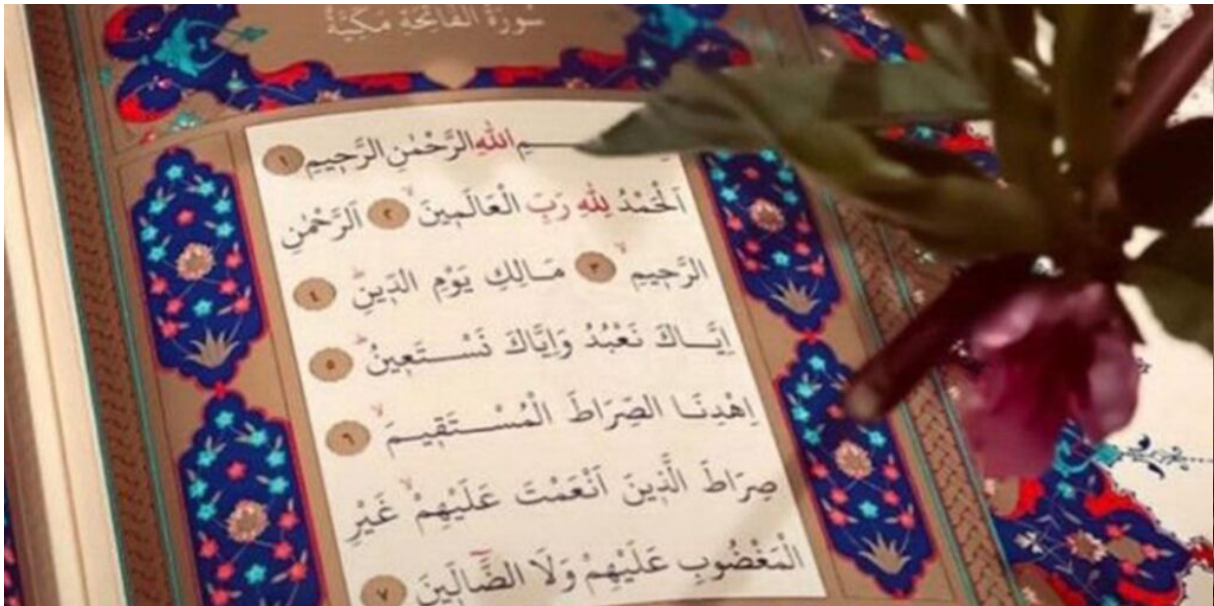 سُورَةُ الْفَاتِحَةِ مَكِّيَّةٌ
ـــمِ اللّٰهِ الرَّحْمٰنِ الرَّحِيمِ ١
اَلْحَمْدُ لِلّٰهِ رَبِّ الْعَالَمِينَۙ ٢ اَلرَّحْمٰنِ
الرَّحِيمِۙ ٣ مَالِكِ يَوْمِ الدِّينِۜ ٤
اِيَّاكَ نَعْبُدُ وَاِيَّاكَ نَسْتَعِينُۜ ٥
اِهْدِنَا الصِّرَاطَ الْمُسْتَقِيمَۙ ٦
صِرَاطَ الَّذِينَ اَنْعَمْتَ عَلَيْهِمْۙ غَيْرِ
الْمَغْضُوبِ عَلَيْهِمْ وَلَا الضَّٓالِّينَ ٧